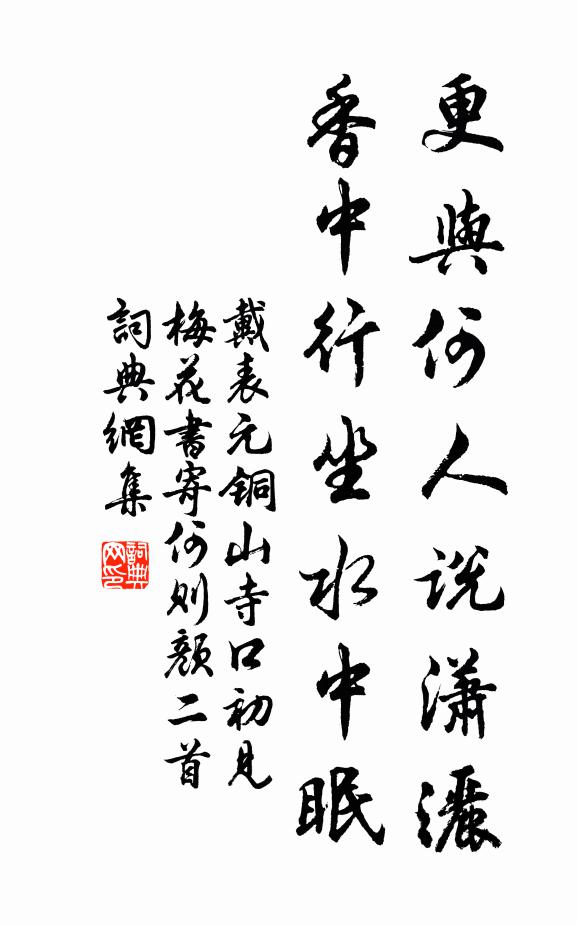 更與何人説瀟灑
香中行坐水中眠
戴表元銅山寺口初見
梅花書寄何則顔二首
詞典網集
詞典
网印